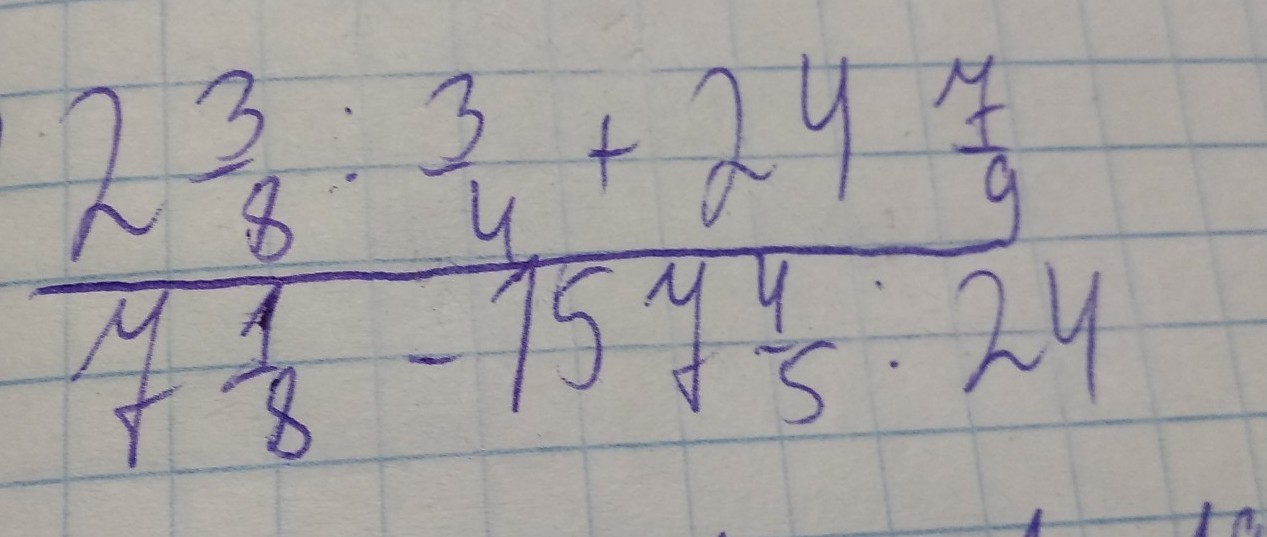 2 3/8 : 3/4 + 24 7/9
7 1/8 - 157 4/5 : 24